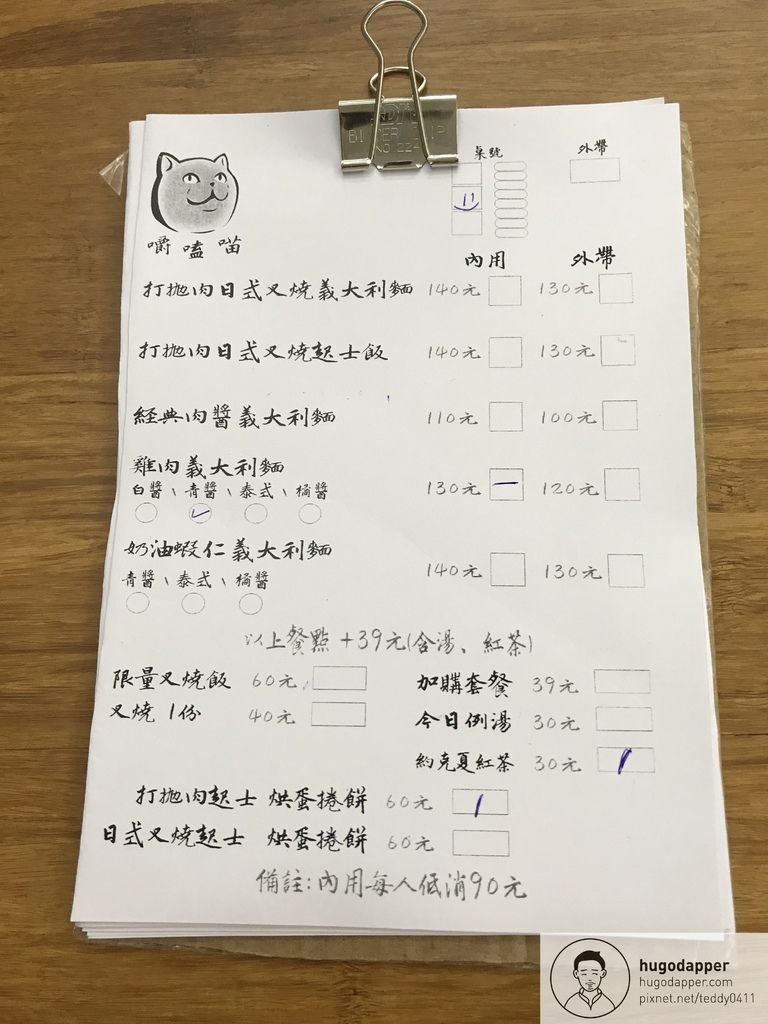 BINDER CLIP
NO 224
桌號
外帶
嚼嗑喵
內用 外帶
打拋肉日式叉燒義大利麵 140元 130元
打拋肉日式叉燒起士飯 140元 130元
經典肉醬義大利麵 110元 100元
雞肉義大利麵 130元 120元
白醬、青醬、泰式、橘醬
奶油蝦仁義大利麵 140元 130元
青醬、泰式、橘醬
以上餐點+39元(含湯、紅茶)
限量叉燒飯 60元 加購套餐 39元
叉燒1份 40元 今日例湯 30元
約克夏紅茶 30元
打拋肉起士 烘蛋捲餅 60元
日式叉燒起士 烘蛋捲餅 60元
備註:內用每人低消90元
hugodapper
hugodapper.com
pixnet.net/teddy0411